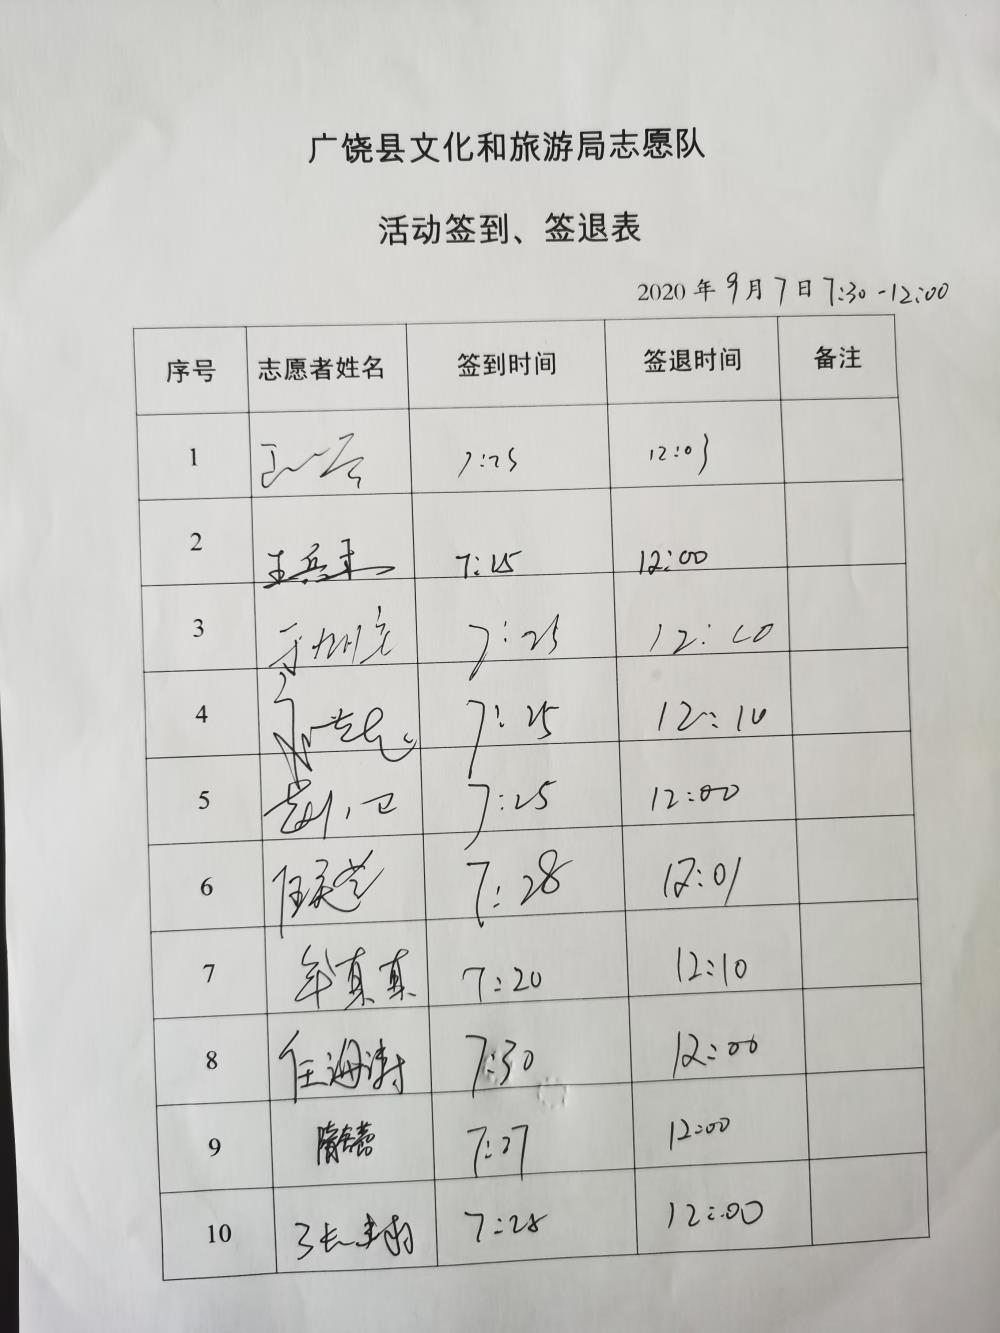 广饶县文化和旅游局志愿队
活动签到、签退表
2020年9月7日 7:30-12:00
序号 志愿者姓名 签到时间 签退时间 备注
1 7:25 12:03
2 7:15 12:00
3 7:25 12:10
4 7:25 12:10
5 7:25 12:00
6 7:28 12:01
7 牟真真 7:20 12:10
8 任海涛 7:30 12:00
9 7:27 12:00
10 7:28 12:00